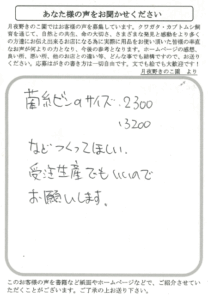 あなた様の声をお聞かせください
月夜野きのこ園では お客様の声を募集しています。クワガタ・カブトムシ飼
育を通じて、自然との共生、命の大切さ、さまざまな発見と感動をより多く
の方達にお伝え出来るお店になる為に実際に用品をお使い頂いた皆様の率直
なお声が何よりの力となり、今後の参考となります。ホームページの感想、
良い所、悪い所、他のお店との違い等、どんな事でも結構ですので、お送り
ください。応募はがきの書き方は一切自由です。文でも絵でも大歓迎です！
月夜野きのこ園 より
菌糸ビンのサイズ・2300
・3200
などつくってほしい。
受注生産でもいいので
お願いします。
このお客様の声を書籍など紙面やホームページなどで、ご紹介させてい
ただくことがございます。ご了承の上お送り下さい。